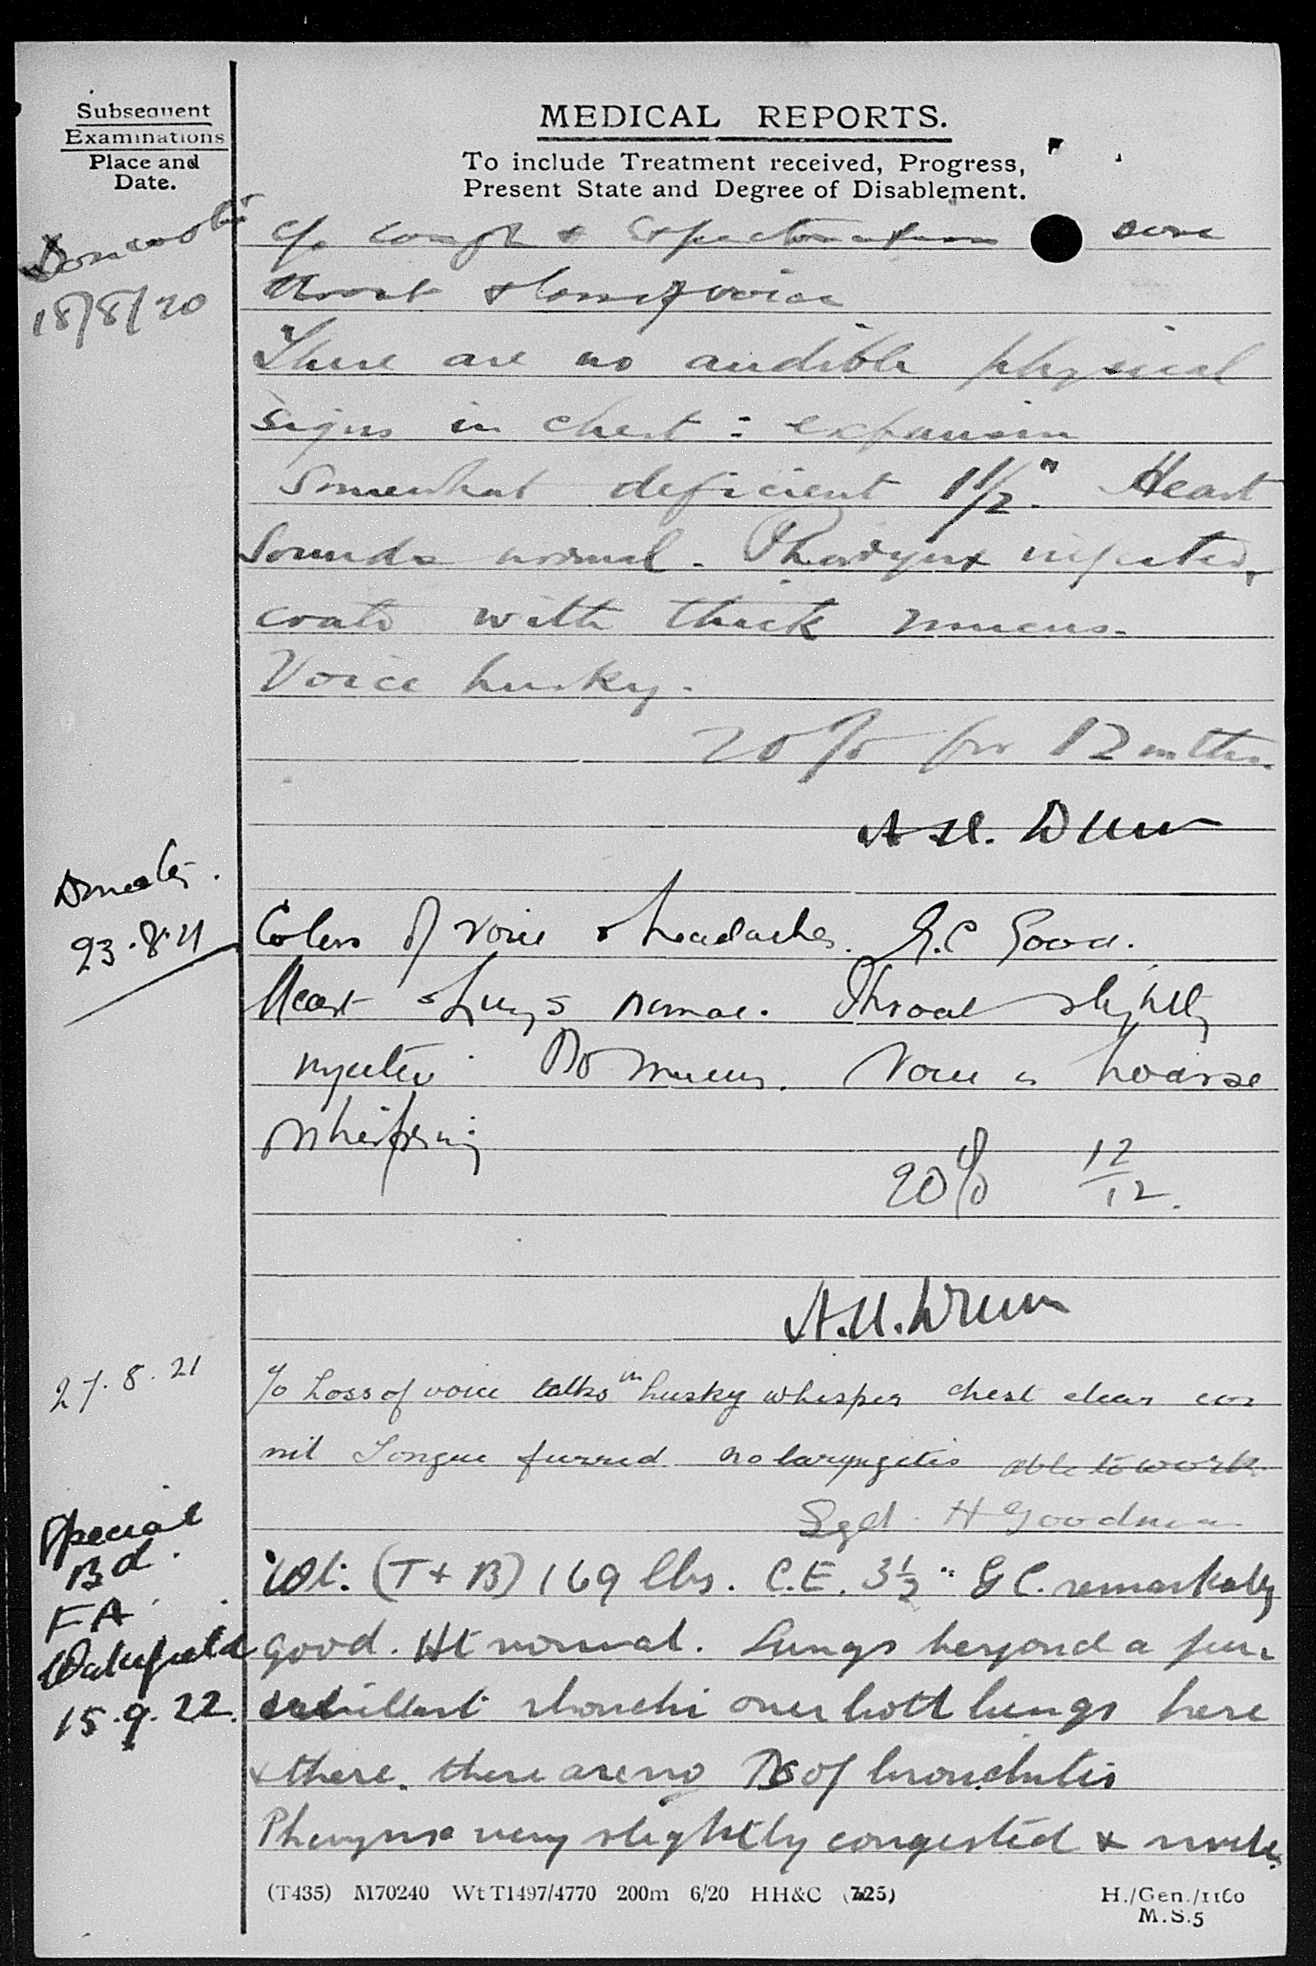 Subsequent
Examinations
Place and
Date.
MEDICAL REPORTS.
To include Treatment received, Progress,
Present State and Degree of Disablement.
Doncaster
18/8/20
c/o cough & Expectoration sore
throat & loss of voice
There are no audible physical
signs in chest : expansion
somewhat deficient 1 1/2". Heart
Sounds normal. Pharynx injected,
coated with thick mucus.
Voice husky.
20% for 12 mths.
Doncaster.
23.8.21
Co loss of voice & headaches. G.C Good.
Heart & Lungs normal. Throat slightly
injected. No mucus. Voice is hoarse
whispering
20% 12/12.
27.8.21
c/o Loss of voice talks in husky whisper chest clear cor
nil Tongue furred no laryngitis able to work
Sgd. H Goodman
Special
Bd.
FA
Wakefield
15.9.22.
Wt. (T + B) 169 lbs. C.E. 3 1/2" G C. remarkably
good. Ht normal. Lungs beyond a few
sibillant rhonchi over both lungs here
& there. there are no PS of bronchitis
Pharynx very slightly congested &
(T435) M70240 Wt T1497/4770 200m 6/20 HH&C (725)
H./Gen./1160
M.S.5